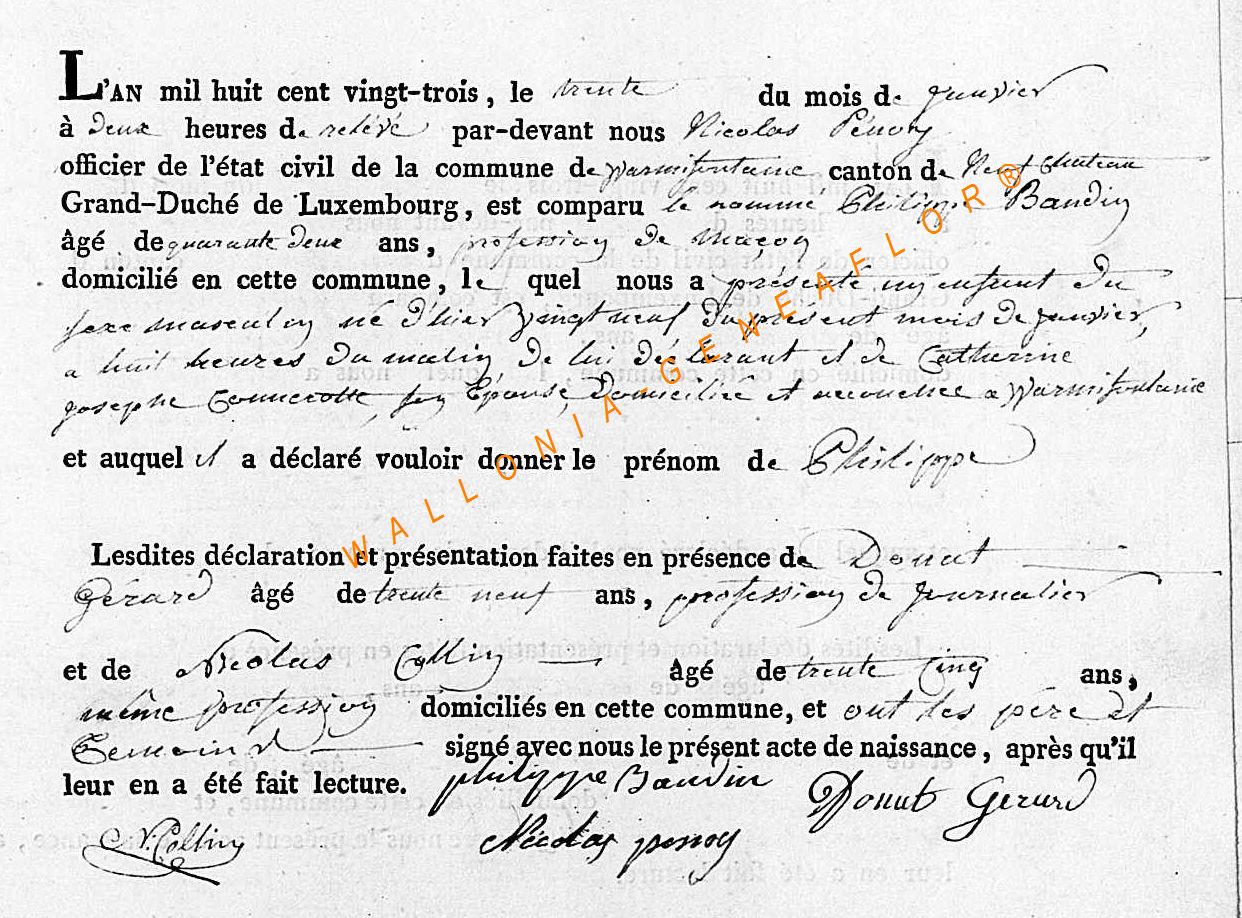 L'AN mil huit cent vingt-trois, le trente du mois de janvier
à deux heures de relévé par-devant nous Nicolas Pénoy
officier de l'état civil de la commune de Warmifontaine canton de Neufchateau
Grand-Duché de Luxembourg, est comparu le nommé Philippe Baudin
âgé de quarante deux ans, profession de maçon
domicilié en cette commune, le quel nous a présenté un enfant du
sexe masculin né d'hier vingt neuf du présent mois de janvier,
a huit heures du matin, de lui déclarant et de Catherine
josephe Connerotte, son Epouse, domiciliée et accouchée a Warmifontaine
et auquel il a déclaré vouloir donner le prénom de Philippe
Lesdites déclaration et présentation faites en présence de Donat
Gérard âgé de trente neuf ans, profession de journalier
et de Nicolas Collin âgé de trente cinq ans,
même profession domiciliés en cette commune, et ont les père et
temoins signé avec nous le présent acte de naissance, après qu'il
leur en a été fait lecture. philippe Baudin Donat Gerard
N. Collin Nicolas penoy
WALLONIA-GENEAFLOR®